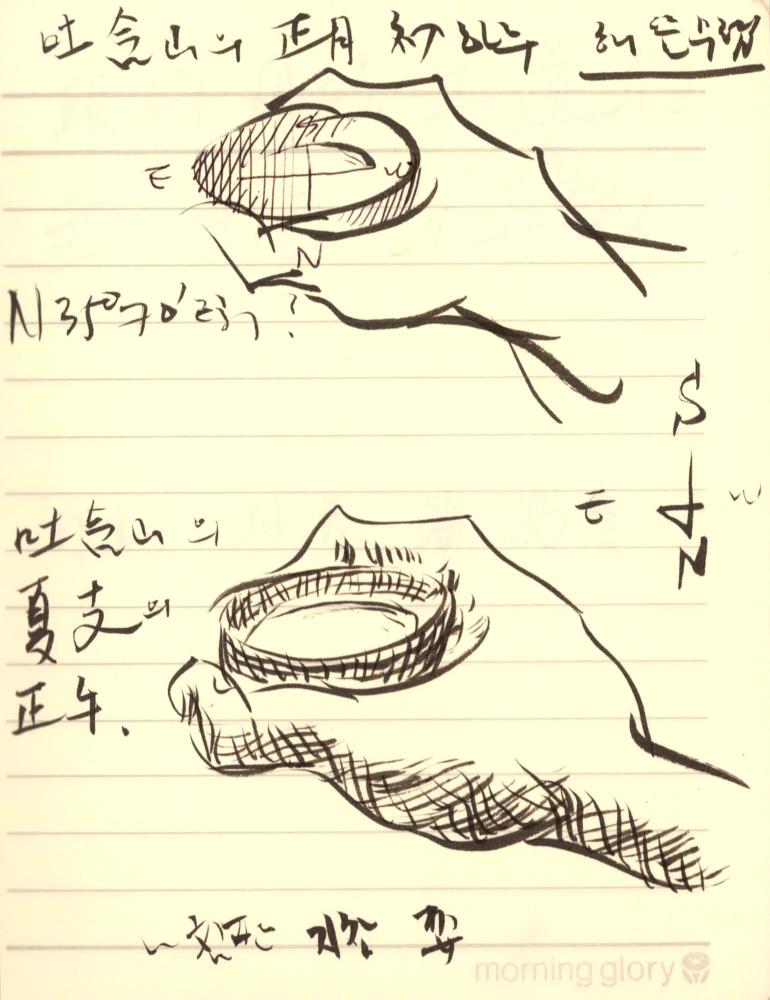 吐含山의 正月 初하루 해 뜬 무렵
E W
N
N 35° ?
S
E W
N
吐含山의
夏支의
正午.
morning glory